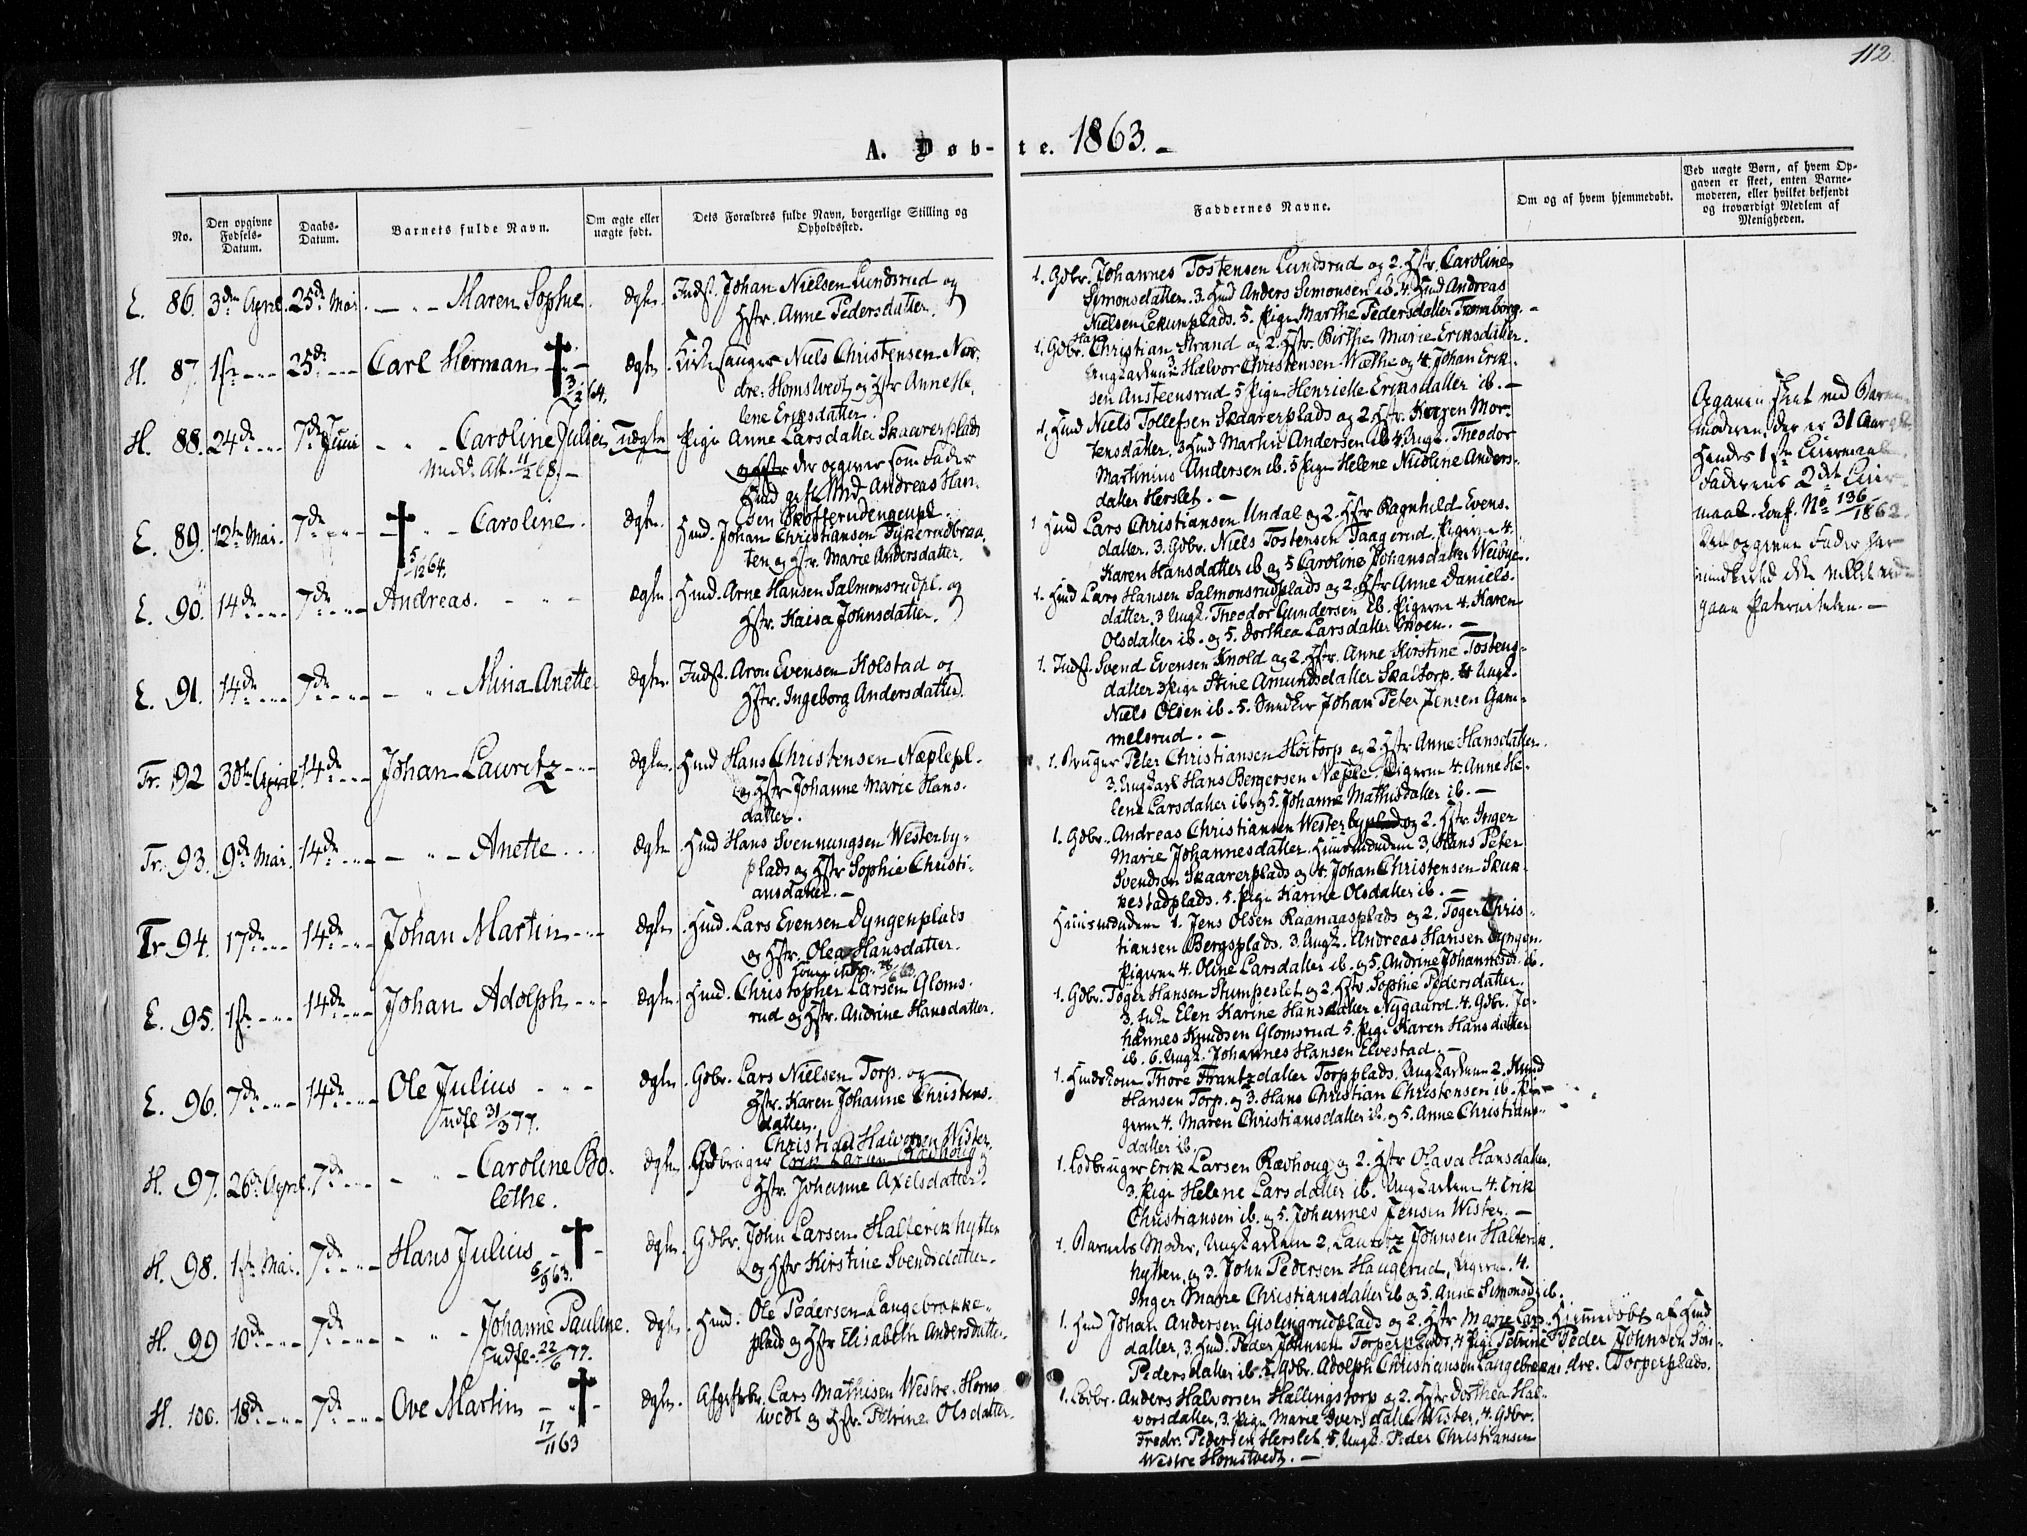 112.
A. Døb-te. 1863. -
No.
Den opgivne Fødsels-Datum.
Daabs-Datum.
Barnets fulde Navn.
Om ægte eller uægte født.
Dets Forældres fulde Navn, borgerlige Stilling og Opholdssted.
Faddernes Navne.
Om og af hvem hjemmedøbt.
Ved uægte Børn, af hvem Opgaven er skeet, enten Barnemoderen, eller hvilket bekjendt og troværdigt Medlem af Menigheden.
E. 86. 3die April. 25de Mai. - " - Maren Sophie. ægte. Indst. Johan Nielsen Lundsrud og
Hstr. Anne Pedersdatter.
1. Gdbr. Johannes Tostensen Lundsrud og 2. Hstr. Caroline
Simonsdatter. 3. Hmd Anders Simonsen ib. 4. Hmd Andreas
Nielsen Lekumplads. 5. Pige Marthe Pedersdatter Tromborg. -
H. 87. 1ste - - 25de - - Carl Herman † 3/2 64. ægte. Kirkesanger Niels Christensen Nor-
dre-Homstvedt og Hstr Anne He-
lene Eriksdatter.
1. Gdbr. Hans Christian Strand og 2. Hstr. Birthe Marie Eriksdatter.
Ungkarlene 3. Halvor Christensen Wæthe og 4. Johan Erik-
sen Ansteensrud 5 Pige Henriette Eriksdatter ib. -
H. 88. 24de - - 7de Juni - " - Caroline Julie. Uægte Pige Anne Larsdatter Skaarerplads
Medd. Att. 11/2 68. -
og Hstr der opgiver som Fader
Hmd gift Hmd Andreas Han-
sen Skofterudengenpl.
1. Hmd Niels Tollefsen Skaarerplads og 2. Hstr. Karen Mor-
tensdatter. 3 Hmd Martin Andersen ib. 4. Ungk. Theodor
Martinius Andersen ib. 5 Pige Helene Nicoline Anders-
datter Herslet. -
Opgaven skeet ved Barne
moderen, der er 31 Aar gl.
Hendes 1ste Leiermaal.
Faderens 2det Leier-
maal. Conf. No 136/1862.
Den opgivne Fader har
imidlertid ikke villet ved-
gaae Paterniteten. -
E. 89. 12te Mai. 7de - - † 5/12 64. - Caroline. ægte. Hmd. Johan Christiansen Dykerudbraa-
ten og Hstr. Marie Andersdatter.
1 Hmd Lars Christiansen Undal og 2. Hstr Ragnhild Evens-
datter. 3. Gdbr. Niels Tostensen Taagerud. Pigerne 4.
Karen Hansdatter ib og 5 Caroline Johansdatter Weibye.
E. 90. 14de - - 7de - - Andreas. - " - ægte Hmd. Arne Hansen Salmonsrudpl. og
Hstr. Kaisa Johnsdatter.
1. Hmd Lars Hansen Salmonsrudplads og 2. Hstr Anne Daniels-
datter. 3 Ungk. Theodor Gundersen ib. Pigerne 4. Karen
Olsdatter ib. og 5. Dorthea Larsdatter Moen. -
E. 91. 14de - - 7de - - - " - Mina Anette. ægte. Indst. Aron Evensen Holstad og
Hstr. Ingeborg Andersdatter.
1. Indst. Svend Evensen Knold og 2. Hstr. Anne Kirstine Tostens-
datter 3 Pige Stine Amundsdatter Skaltorp. 4 Ungk.
Niels Olsen ib. 5. Smeder Johan Peter Jensen Gam-
melsrud. -
Tr. 92 30te April 14de - - Johan Lauritz - - ægte. Hmd Hans Christensen Næplepl-
og Hstr Johanne Marie Hans-
datter.
1. Bruger Peter Christiansen Høitorp og 2. Hstr Anne Hansdatter.
3. Ungkarl Hans Bergersen Næple. Pigerne 4. Anne He-
lene Larsdatter ib. og 5. Johanne Mathisdatter ib. -
Tr. 93. 9de Mai. 14de - - - " - Anette. . . ægte Hmd Hans Svennungsen Westerby-
plads og Hstr Sophie Christi-
ansdatter. -
1. Gdbr. Andreas Christiansen Westerbyplads og 2. Hstr Inger
Marie Johannesdatter. Huusmændene 3. Hans Peter
Svendsen Skaarerplads og 4. Johan Christensen Skuk-
kestadplads. 5. Pige Karine Olsdatter ib. -
Tr 94. 17de - - 14de - - Johan Martin - - ægte. Hmd. Lars Evensen Dyngenplads
og Hstr. Olea Hansdatter.
Huusmændene 1. Jens Olsen Raanaasplads og 2. Toger Chris-
tiansen Bergsplads. 3. Ungk. Andreas Hansen Dyngen.
Pigerne 4. Oline Larsdatter ib. og 5. Andrine Johannesd. ib.
E. 95. 1ste - - 14de - - Johan Adolph - - ægte. Hmd. Christopher Larsen Gloms-
rud og Hstr. Andrine Hansdatter.
1. Gdbr. Toger Hansen Stumpeslet og 2. Hstr Sophie Pedersdatter.
3. Enke Elen Karine Hansdatter Nygaard. 4. Gdbr. Jo-
hannes Knudsen Glomsrud 5. Pige Karen Hansdatter
ib. 6. Ungk. Johannes Hansen Elvestad. -
E. 96. 7de - - 14de - - Ole Julius - " - ægte Gdbr. Lars Nielsen Torp og
Indfl 31/3 77.
Hstr. Karen Johanne Christens-
datter.
1. Hmdskone Thore Frantzdatter Torpplads. Ungkarlene 2. Knud
Hansen Torp. og 3. Hans Christian Christensen ib. Pi-
gerne 4. Maren Christiansdatter ib. og 5. Anne Christians-
datter ib.
H. 97. 26de April. 7de - - - " - Caroline Bo-
lethe.
ægte Christian Halvorsen Wister
Gdbruger Erik Larsen Rævhoug og
Hstr. Johanne Axelsdatter.
1. Lodbruger Erik Larsen Rævhoug og 2. Hstr Olava Hansdatter.
3. Pige Helene Larsdatter ib. Ungkarlene 4. Erik
Christiansen ib. og 5. Johannes Jensen Wister. -
H. 98. 1ste Mai. 7de - - Hans Julius - † 6/9 63. ægte. Gdbr. John Larsen Halterikhytten
og Hstr Kirstine Svendsdatter.
1. Barnets Moder, Ungkarlene 2, Lauritz Johnsen Halterik-
hytten, og 3. John Pedersen Haugerud, Pigerne 4.
Inger Marie Christiansdatter ib og 5. Anne Simonsd. ib.
H. 99 10de - - 7de - - - " - Johanne Pauline. ægte. Hmd. Ole Pedersen Langebrække-
Indfl. 22/6 77.
plads og Hstr Elisabeth Andersdatter.
1. Hmd Johan Andersen Gislingrudplads og 2. Hstr Marie Lars-
datter, 3. Hmd. Peder Johnsen Torperplads, 4 Pige Petrine
Pedersdatter ib. 5. Gdbr. Adolph Christiansen Langebrække.
Hjemmedøbt af Hmd
Peder Johnsen Søn-
dre Torperplads.
H. 100. 18de - - 7de - - Ove Martin - † 17/11 63 ægte. Lars Mathisen Westre-Homs-
tvedt og Hstr. Petrine Olsdatter.
1. Lodbr. Anders Halvorsen Hallingstorp og 2. Hstr Dorthea Hal-
vorsdatter, 3. Pige Marie Iversdatter Wister, 4. Gdbr.
Fredr. Pedersen Herslet. 5. Ungk. Peder Christiansen
Westre Homstvedt. -